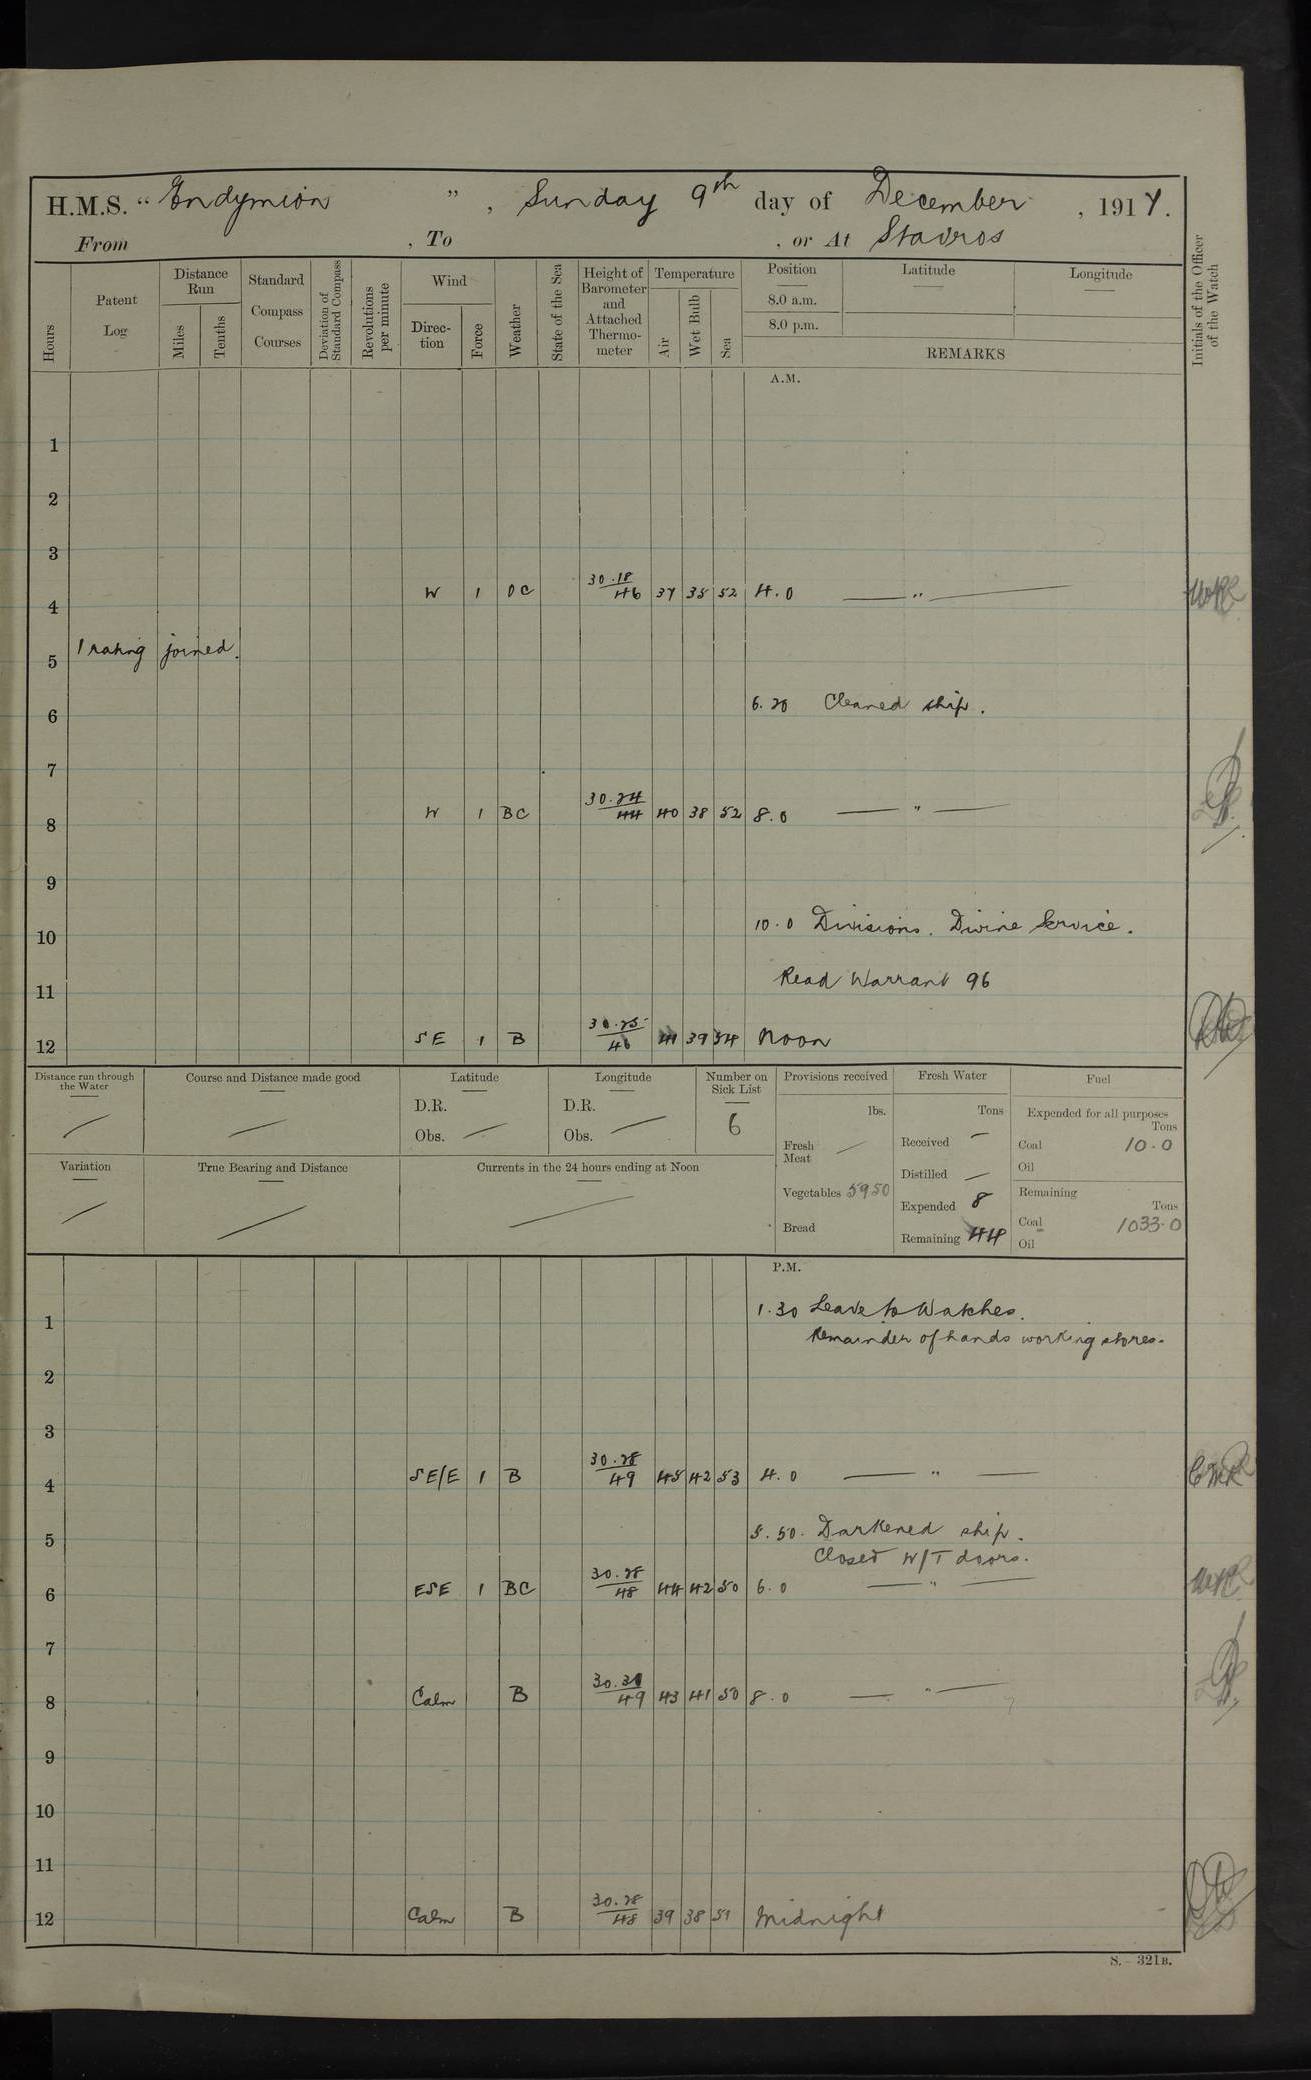 H.M.S. “ Endymion ” , Sunday 9th day of December , 1917.
From , To , or At Stavros
Hours
Patent Log
Distance Run
Miles
Tenths
Standard Compass Courses
Deviation of Standard Compass
Revolutions per minute
Wind
Direc-tion
Force
Weather
State of the Sea
Height of Barometer and Attached Thermo-meter
Temperature
Air
Wet Bulb
Sea
Position
8.0 a.m.
8.0 p.m.
Latitude
Longitude
REMARKS
Initials of the Officer of the Watch
A.M.
1
2
3
4 W 1 OC 30.18 46 37 35 52 4.0 — " —
5 1 rating joined.
6 6.20 Cleaned ship.
7
8 W 1 BC 30.24 44 40 38 52 8.0 — " —
9
10 10.0 Divisions. Divine Service.
11 Read Warrant 96
12 SE 1 B 30.25 46 41 39 54 Noon
Distance run through the Water
Course and Distance made good
Latitude
D.R.
Obs.
Longitude
D.R.
Obs.
Number on Sick List
6
Provisions received
lbs.
Fresh Meat
Vegetables 5950
Bread
Fresh Water
Tons
Received —
Distilled —
Expended 8
Remaining 44
Fuel
Expended for all purposes
Tons
Coal 10.0
Oil
Remaining
Tons
Coal 1033.0
Oil
Variation
True Bearing and Distance
Currents in the 24 hours ending at Noon
P.M.
1 1.30 Leave to Watches.
Remainder of hands working stores.
2
3
4 SE/E 1 B 30.28 49 45 42 53 4.0 — " — CMR
5 5.50. Darkened ship.
Closed W/T doors.
6 ESE 1 BC 30.28 48 44 42 50 6.0 — " —
7
8 Calm B 30.30 49 43 41 50 8.0 — " —
9
10
11
12 Calm B 30.28 48 39 38 51 Midnight
S.—321B.